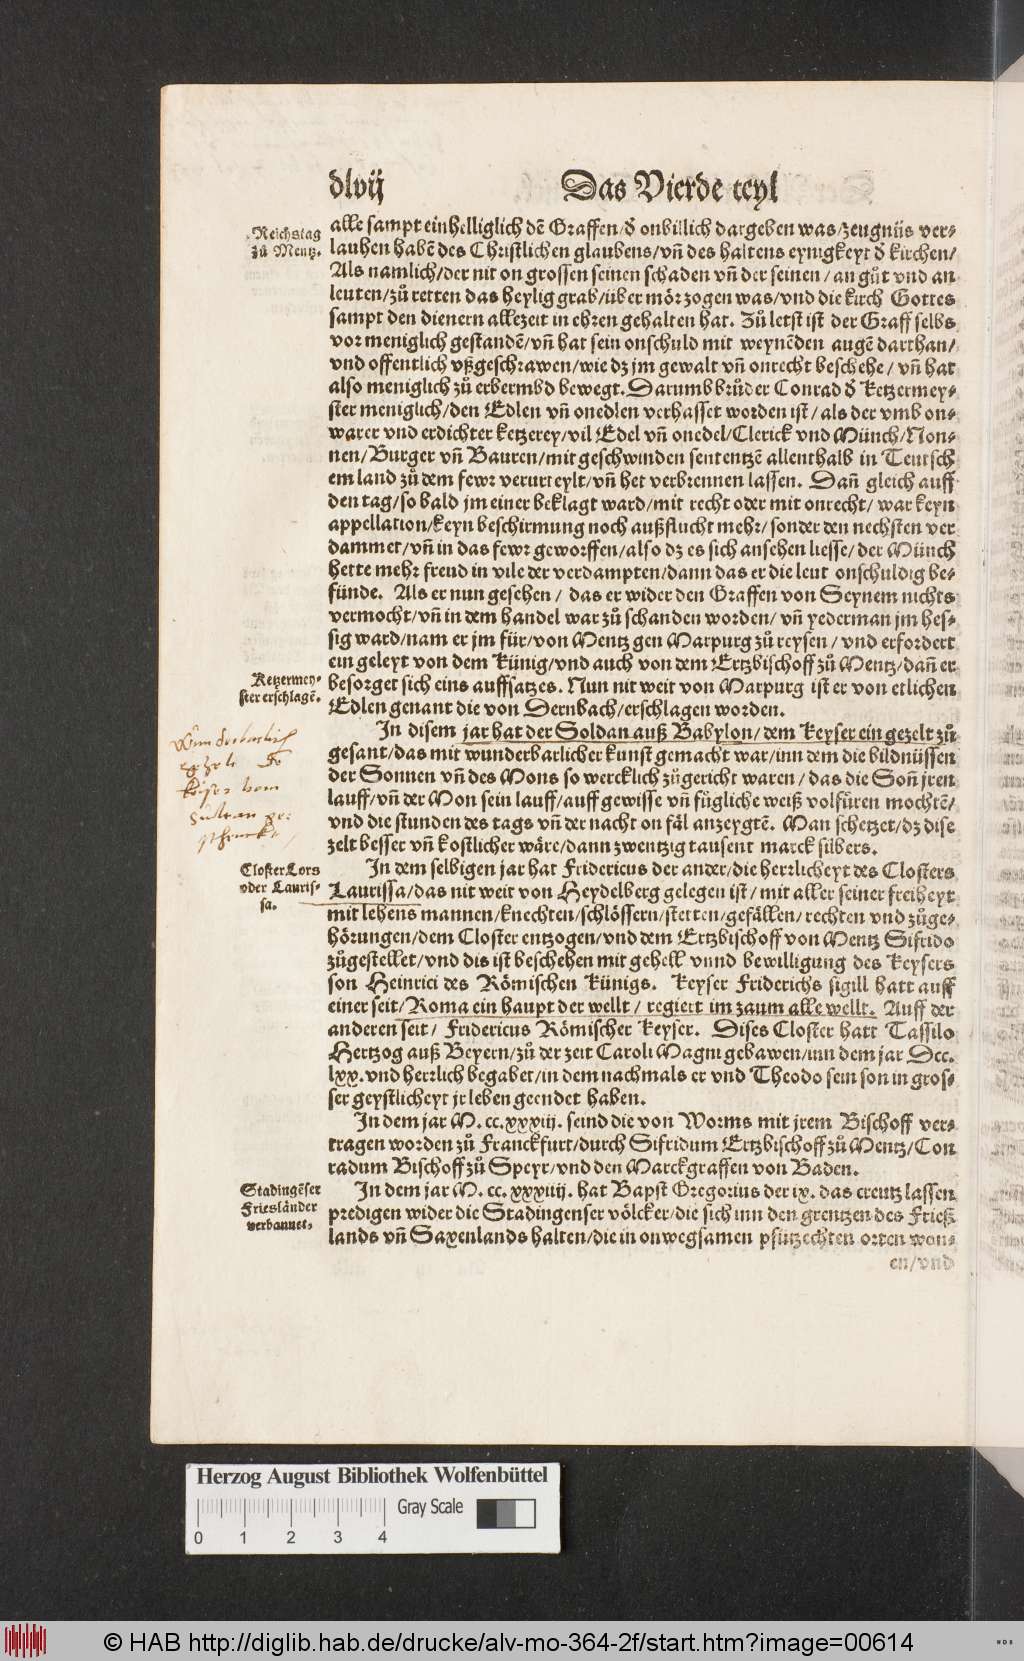 dlvij
Das Vierde teyl
Reichstag
zů Mentz.
alle sampt einhelliglich dẽ Graffen/ď onbillich dargeben was/zeugnüs ver-
lauhen habẽ des Christlichen glaubens/vñ des haltens eynigkeyt ď kirchen/
Als namlich/der nit on grossen seinen schaden vñ der seinen/an gůt vnd an
leuten/zů retten das heylig grab/über mör zogen was/vnd die kirch Gottes
sampt den dienern allezeit in ehren gehalten hat. Zů letst ist der Graff selbs
vor meniglich gestandẽ/vñ hat sein onschuld mit weynẽden augẽ darthan/
vnd offentlich vßgeschrawen/wie dz jm gewalt vñ onrecht beschehe/vñ hat
also meniglich zů erbermbd bewegt. Darumb brůder Conrad ď Ketzermey-
ster meniglich/den Edlen vñ onedlen verhasset worden ist/als der vmb on-
warer vnd erdichter ketzerey/vil Edel vñ onedel/Clerick vnd Münch/Non-
nen/Burger vñ Bauren/mit geschwinden sententzẽ allenthalb in Teutsch
em land zů dem fewr verurteylt/vñ het verbrennen lassen. Dañ gleich auff
den tag/so bald jm einer beklagt ward/mit recht oder mit onrecht/war keyn
appellation/keyn beschirmung noch außflucht mehr/sonder den nechsten ver
dammet/vñ in das fewr geworffen/also dz es sich ansehen liesse/der Münch
hette mehr freud in vile der verdampten/dann das er die leut onschuldig be-
fünde. Als er nun gesehen/das er wider den Graffen von Seynem nichts
vermocht/vñ in dem handel war zů schanden worden/vñ yederman jm hes-
sig ward/nam er jm für/von Mentz gen Marpurg zů reysen/vnd erfordert
ein geleyt von dem Künig/vnd auch von dem Ertzbischoff zů Mentz/dañ er
Ketzermey-
ster erschlagẽ.
besorget sich eins auffsatzes. Nun nit weit von Marpurg ist er von etlichen
Edlen genant die von Dernbach/erschlagen worden.
In disem jar hat der Soldan auß Babylon/dem Keyser ein gezelt zů
gesant/das mit wunderbarlicher kunst gemacht war/inn dem die bildnüssen
der Sonnen vñ des Mons so wercklich zůgericht waren/das die Soñ jren
lauff/vñ der Mon sein lauff/auff gewisse vñ fügliche weiß volfüren mochtẽ/
vnd die stunden des tags vñ der nacht on fäl anzeygtẽ. Man schetzet/dz dise
zelt besser vñ kostlicher wäre/dann zwentzig tausent marck silbers.
Keiser vom
Sultan ge-
schenckt
Closter Lors
oder Lauris-
sa.
In dem selbigen jar hat Fridericus der ander/die herrlicheyt des Closters
Laurissa/das nit weit von Heydelberg gelegen ist/mit aller seiner freiheyt
mit lehens mannen/knechten/schlössern/stetten/gefällen/rechten vnd zůge-
hörungen/dem Closter entzogen/vnd dem Ertzbischoff von Mentz Sifrido
zůgestellet/vnd dis ist beschehen mit gehell vnnd bewilligung des Keysers
son Heinrici des Römischen Künigs. Keyser Friderichs sigill hatt auff
einer seit/Roma ein haupt der wellt/regiert im zaum alle wellt. Auff der
anderen seit/Fridericus Römischer Keyser. Dises Closter hatt Tassilo
Hertzog auß Beyern/zů der zeit Caroli Magni gebawen/inn dem jar Dcc.
lxx. vnd herrlich begabet/in dem nachmals er vnd Theodo sein son in gros-
ser geystlicheyt jr leben geendet haben.
In dem jar M. cc. xxxiij. seind die von Worms mit jrem Bischoff ver-
tragen worden zů Franckfurt/durch Sifridum Ertzbischoff zů Mentz/Con
radum Bischoff zů Speyr/vnd den Marckgraffen von Baden.
Stadingẽser
Friesländer
verbannet.
In dem jar M. cc. xxxiiij. hat Bapst Gregorius der ix. das creutz lassen
predigen wider die Stadingenser völcker/die sich inn den grentzen des Frieß
lands vñ Saxenlands halten/die in onwegsamen pfützechten orten won-
en/vnd
Herzog August Bibliothek Wolfenbüttel
Gray Scale
0 1 2 3 4
© HAB http://diglib.hab.de/drucke/alv-mo-364-2f/start.htm?image=00614